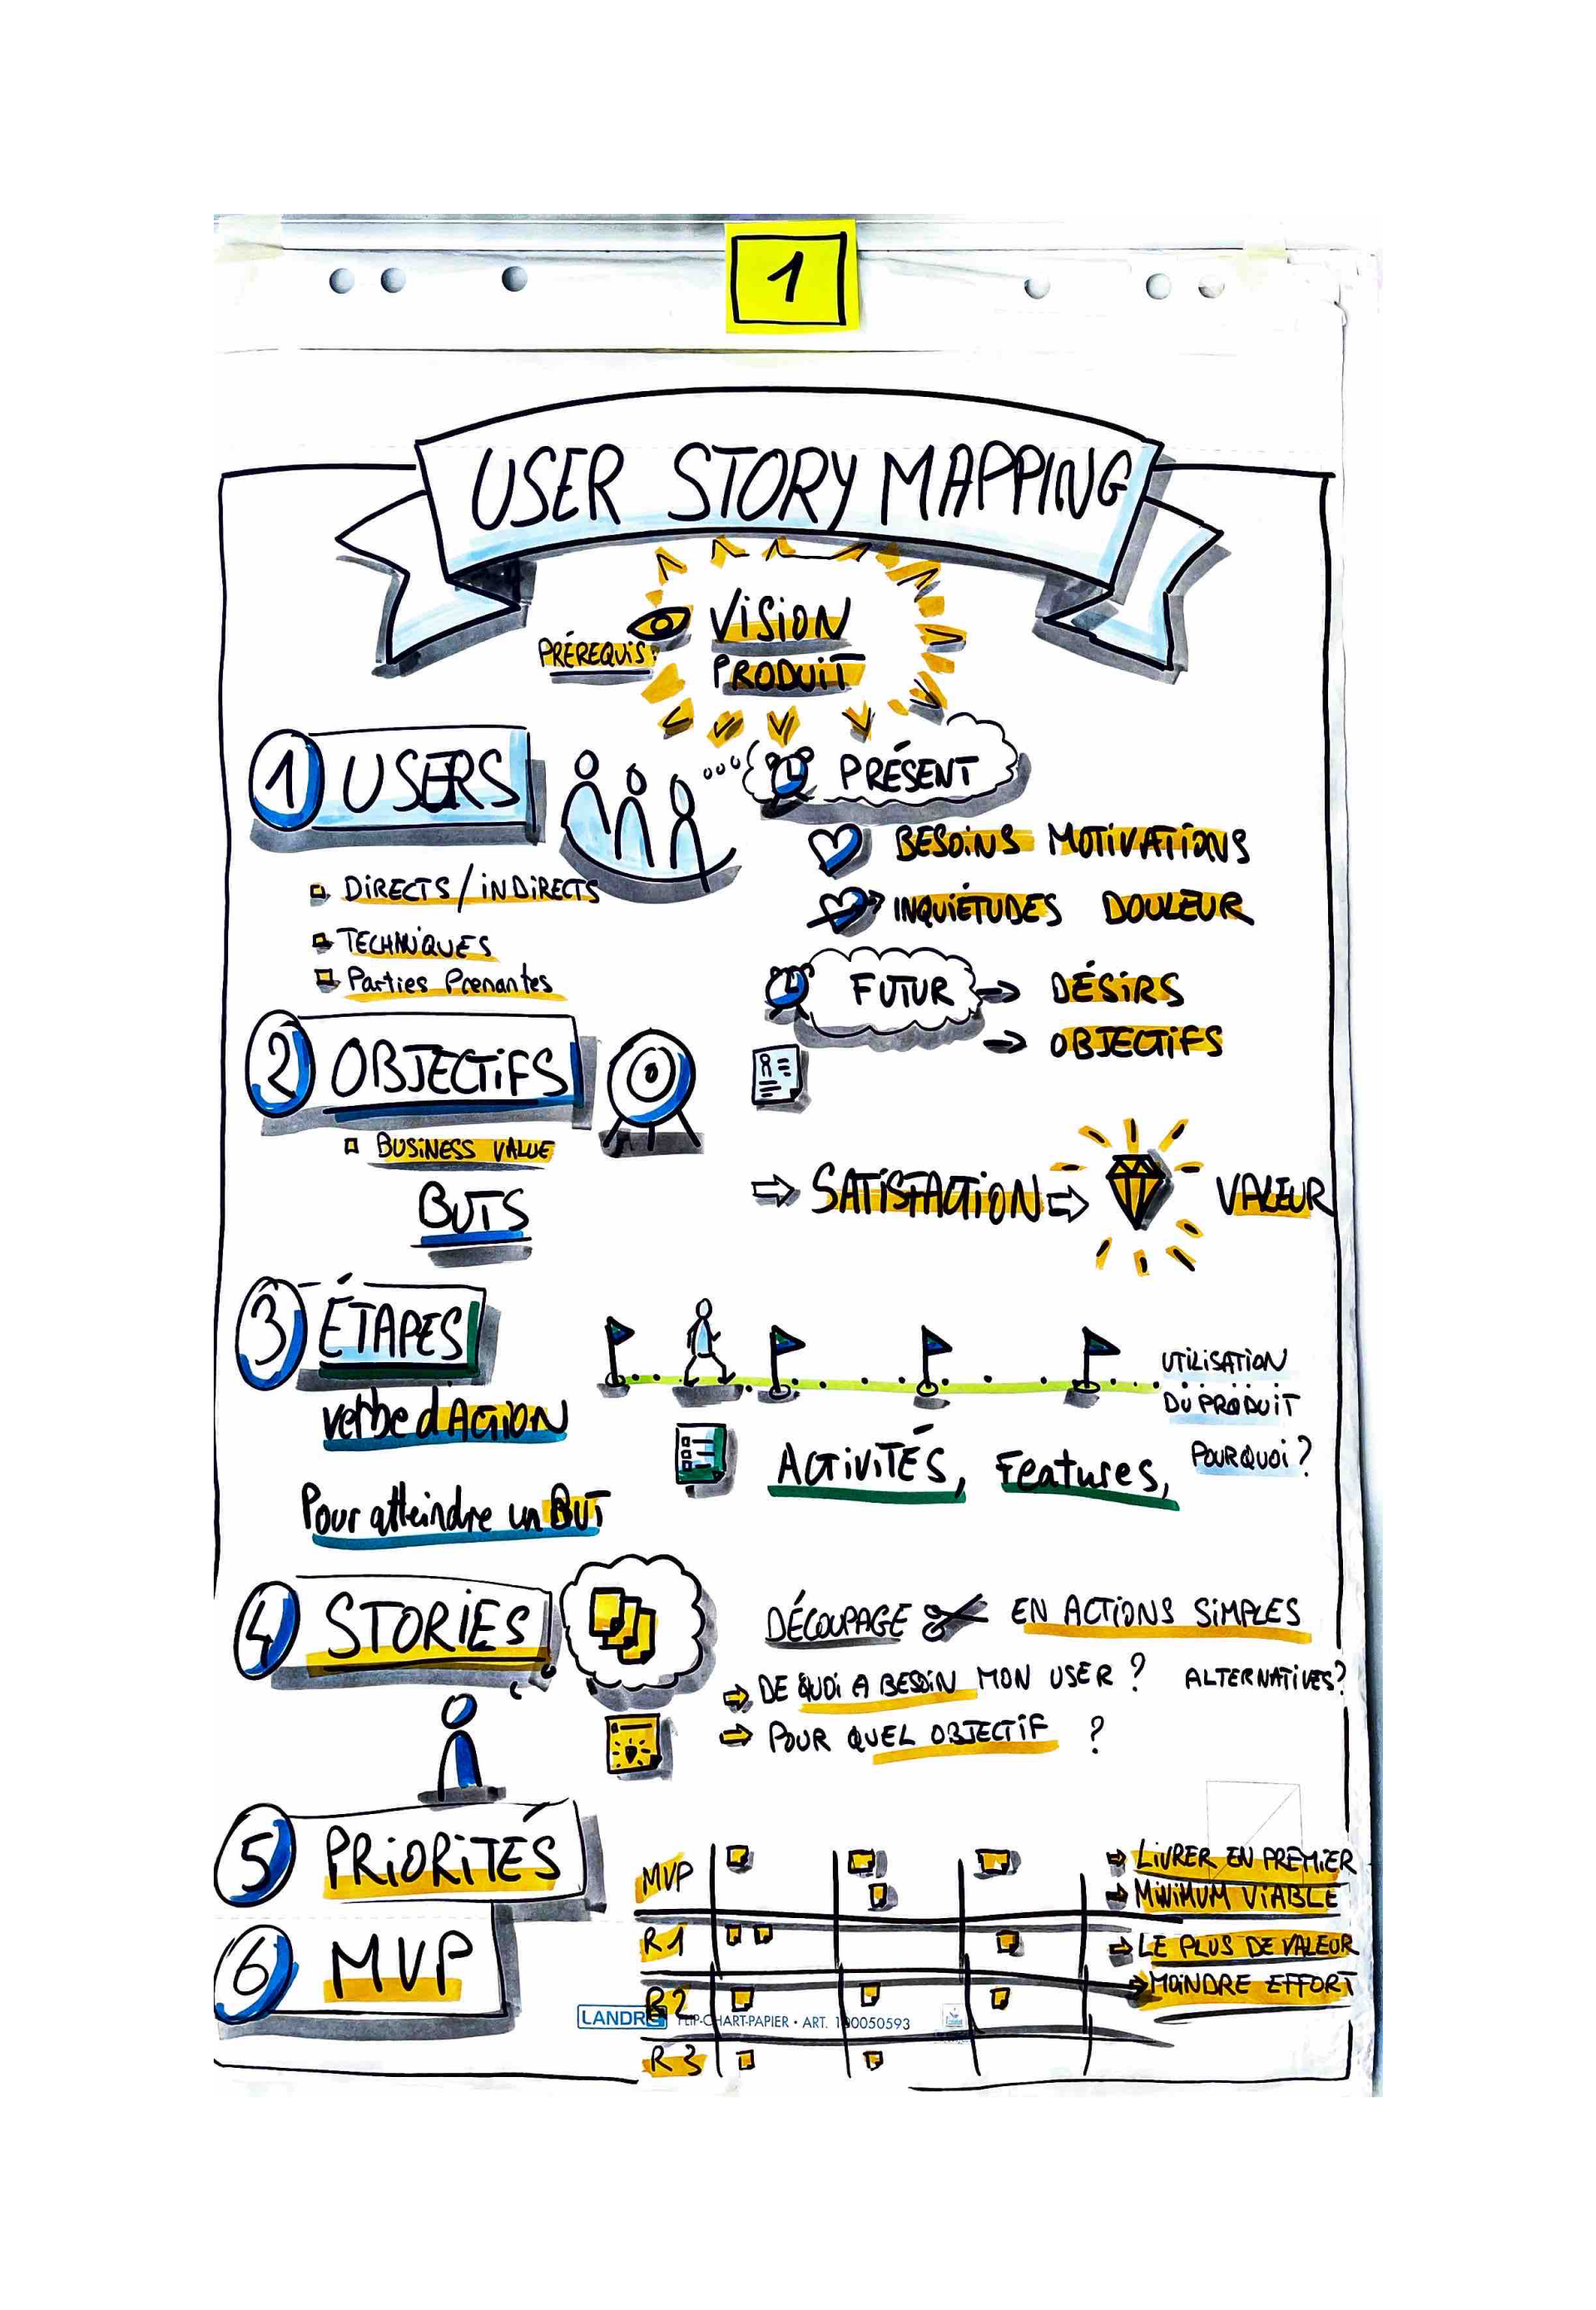 1
USER STORY MAPPING
PRÉREQUIS:
VISION
PRODUIT
1 USERS
DIRECTS / INDIRECTS
TECHNIQUES
Parties Prenantes
PRÉSENT
BESOINS MOTIVATIONS
INQUIÉTUDES DOULEUR
FUTUR → DÉSIRS
→ OBJECTIFS
2 OBJECTIFS
BUSINESS VALUE
BUTS
⇒ SATISFACTION ⇒ VALEUR
3 ÉTAPES
verbe d'ACTION
Pour atteindre un BUT
UTILISATION
DU PRODUIT
POURQUOI ?
ACTIVITÉS, Features,
4 STORIES
DÉCOUPAGE EN ACTIONS SIMPLES
⇒ DE QUOI A BESOIN MON USER ? ALTERNATIVES?
⇒ POUR QUEL OBJECTIF ?
5 PRIORITÉS
6 MVP
MVP
R1
R2
R3
⇒ LIVRER EN PREMIER
⇒ MINIMUM VIABLE
⇒ LE PLUS DE VALEUR
⇒ MOINDRE EFFORT
FLIP-CHART-PAPIER • ART. 100050593